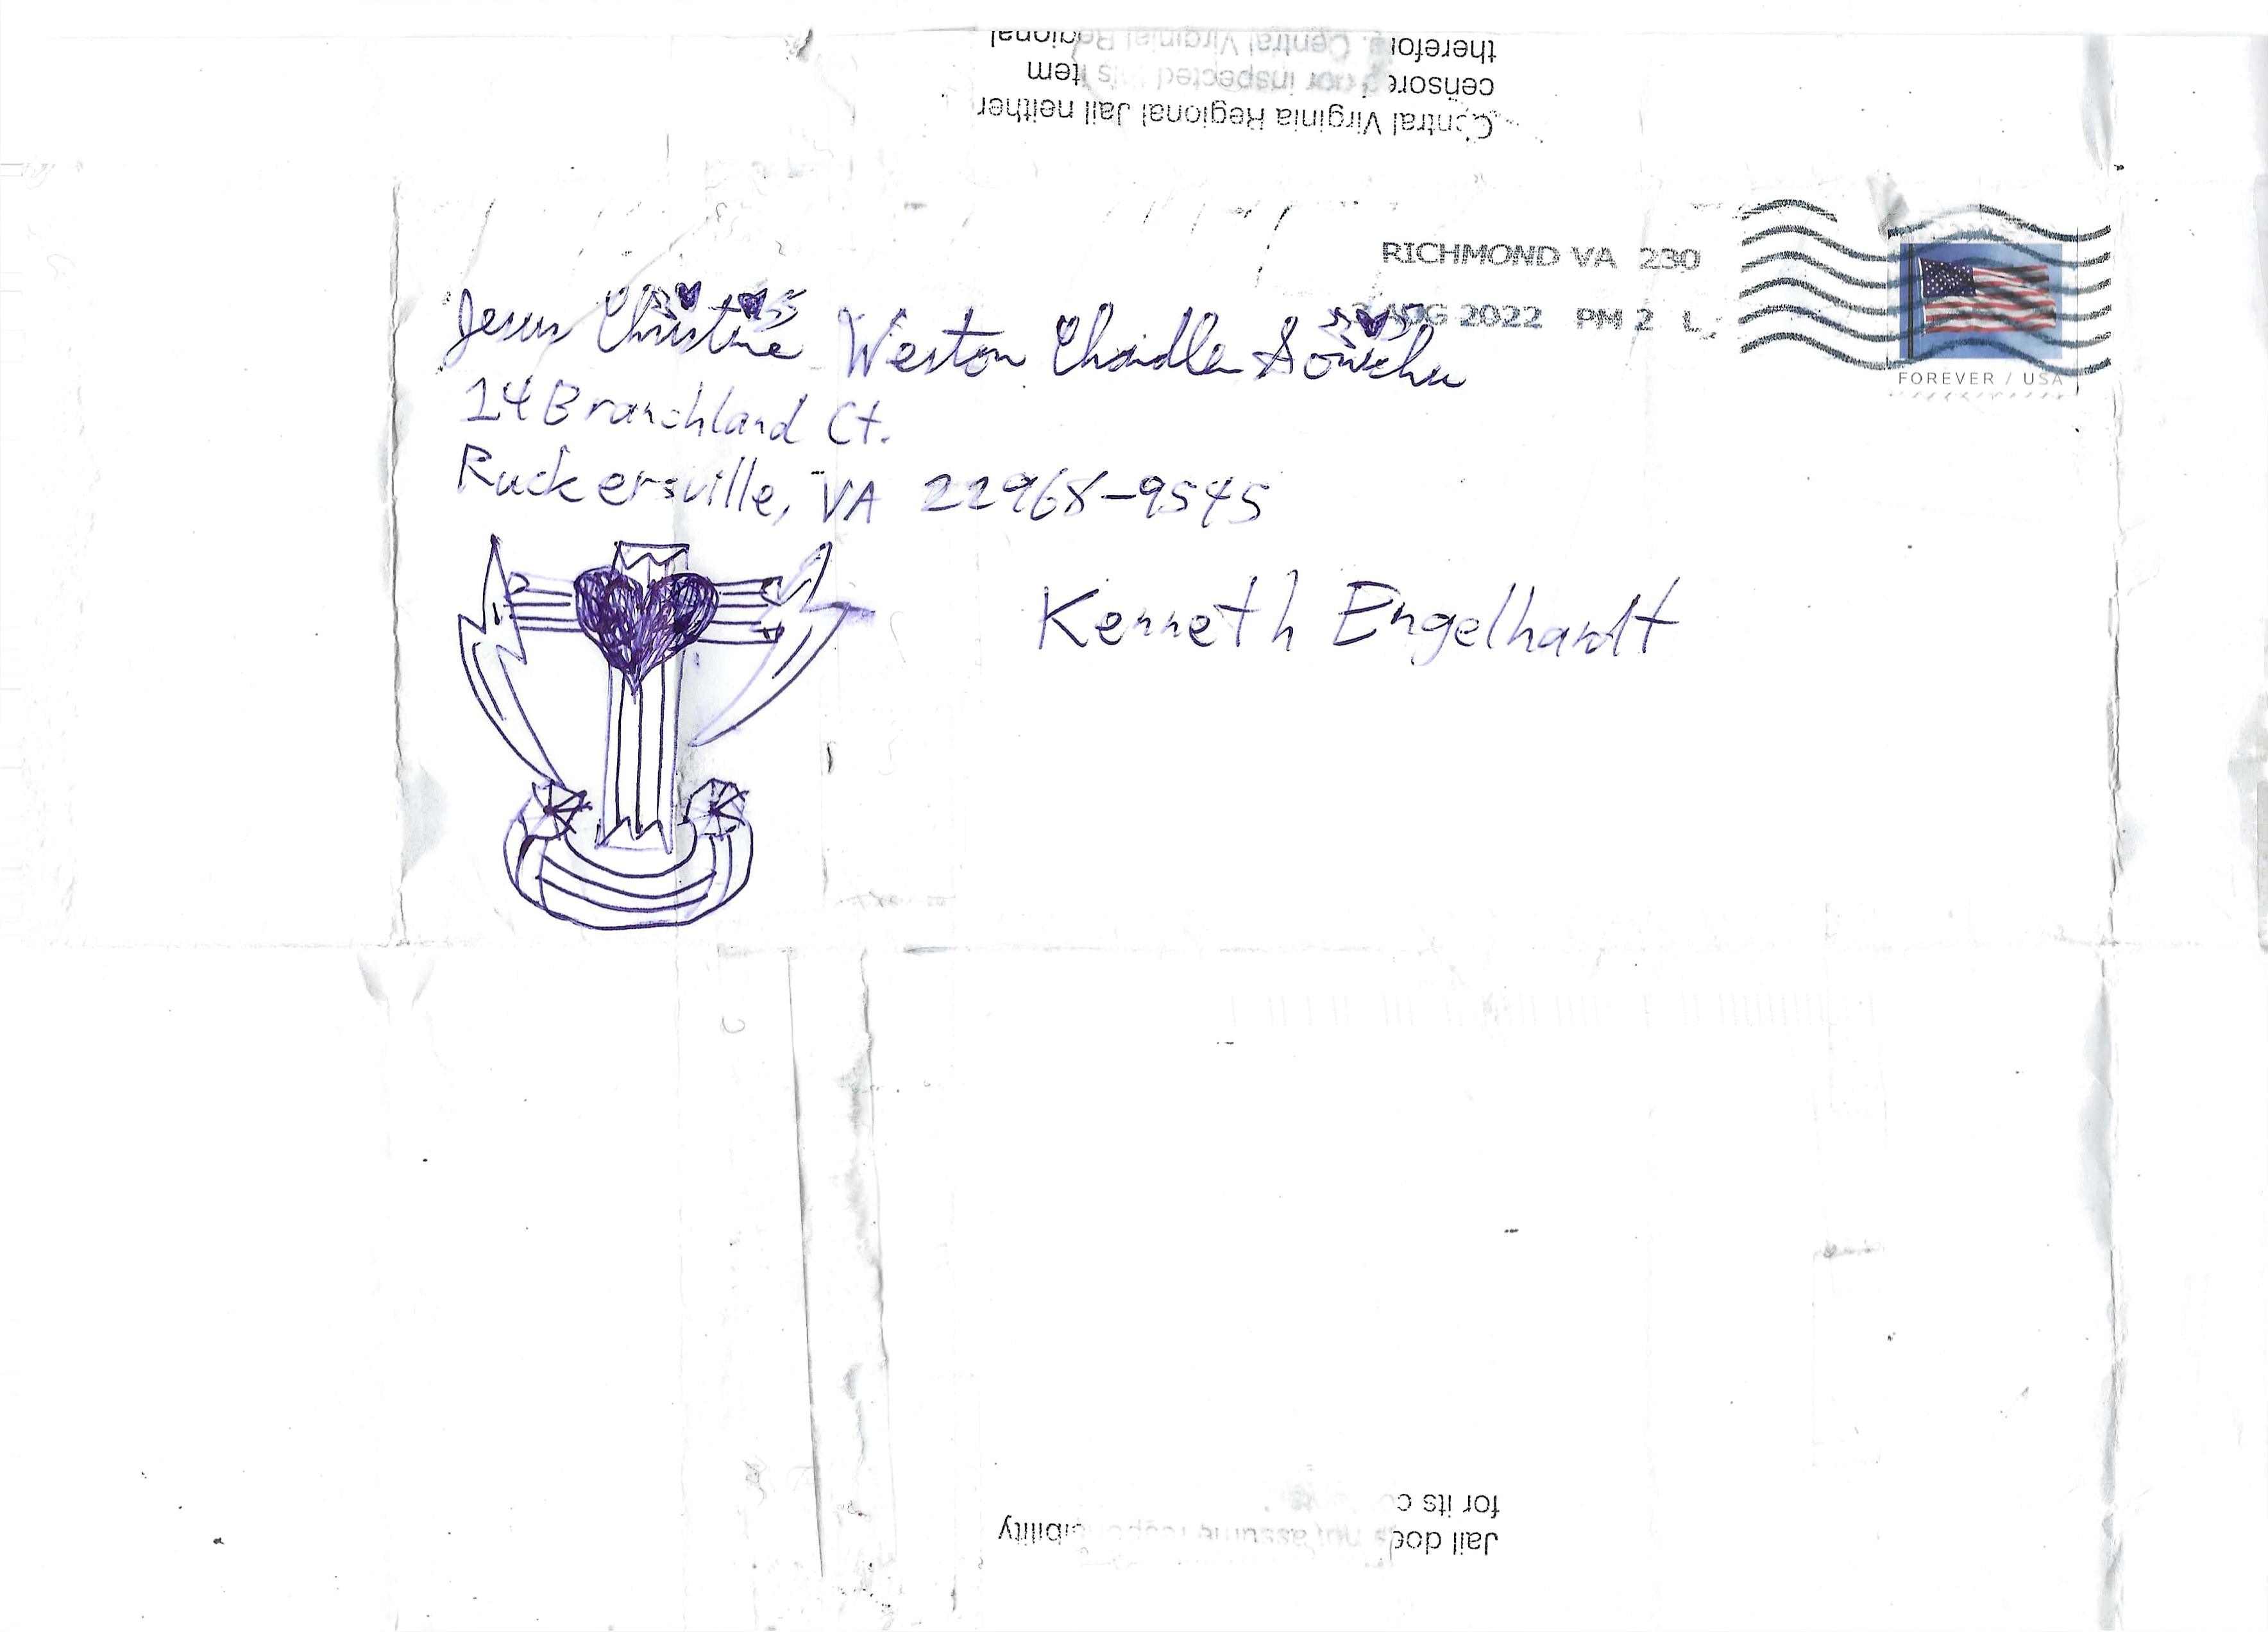 Central Virginia Regional Jail neither
censored nor inspected this item
therefore, Central Virginia Regional
RICHMOND VA 230
AUG 2022 PM 2 L
FOREVER / USA
Jesus Christine Weston Chandler Sonichu
14 Branchland Ct.
Ruckersville, VA 22968-9545
Kenneth Engelhardt
Jail does not assume responsibility
for its